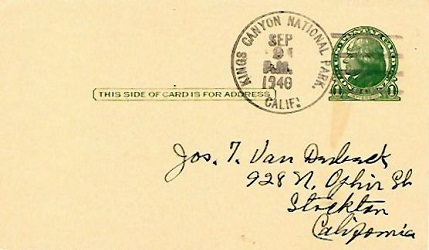 KINGS CANYON NATIONAL PARK,
SEP
9
A.M.
1940
CALIF.
THIS SIDE OF CARD IS FOR ADDRESS
Jos. T. Van
928 N. Ophir St
Stockton
California